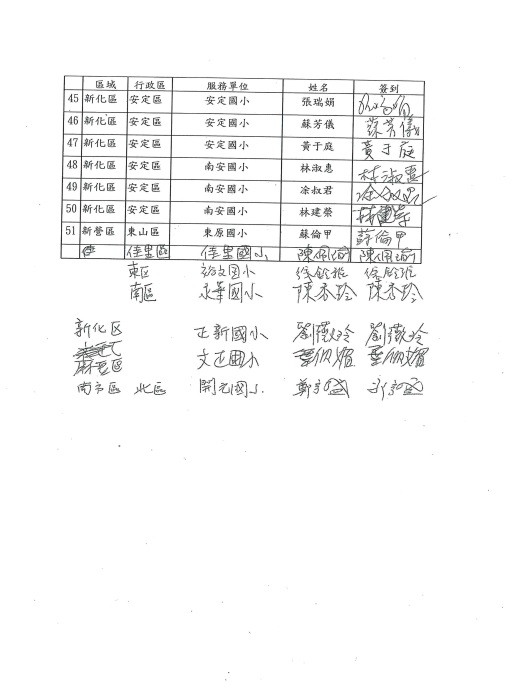 區域 行政區 服務單位 姓名 簽到
45 新化區 安定區 安定國小 張瑞娟
46 新化區 安定區 安定國小 蘇芳儀 蘇芳儀
47 新化區 安定區 安定國小 黃于庭 黃于庭
48 新化區 安定區 南安國小 林淑惠 林淑惠
49 新化區 安定區 南安國小 涂淑君
50 新化區 安定區 南安國小 林建榮 林建榮
51 新營區 東山區 東原國小 蘇倫甲 蘇倫甲
佳里區 佳里國小 陳佩瑜 陳佩瑜
東區 國小
南區 永華國小 陳香玲 陳香玲
新化區 正新國小 劉薇玲 劉薇玲
麻豆區 文正國小
南市區 北區 開元國小